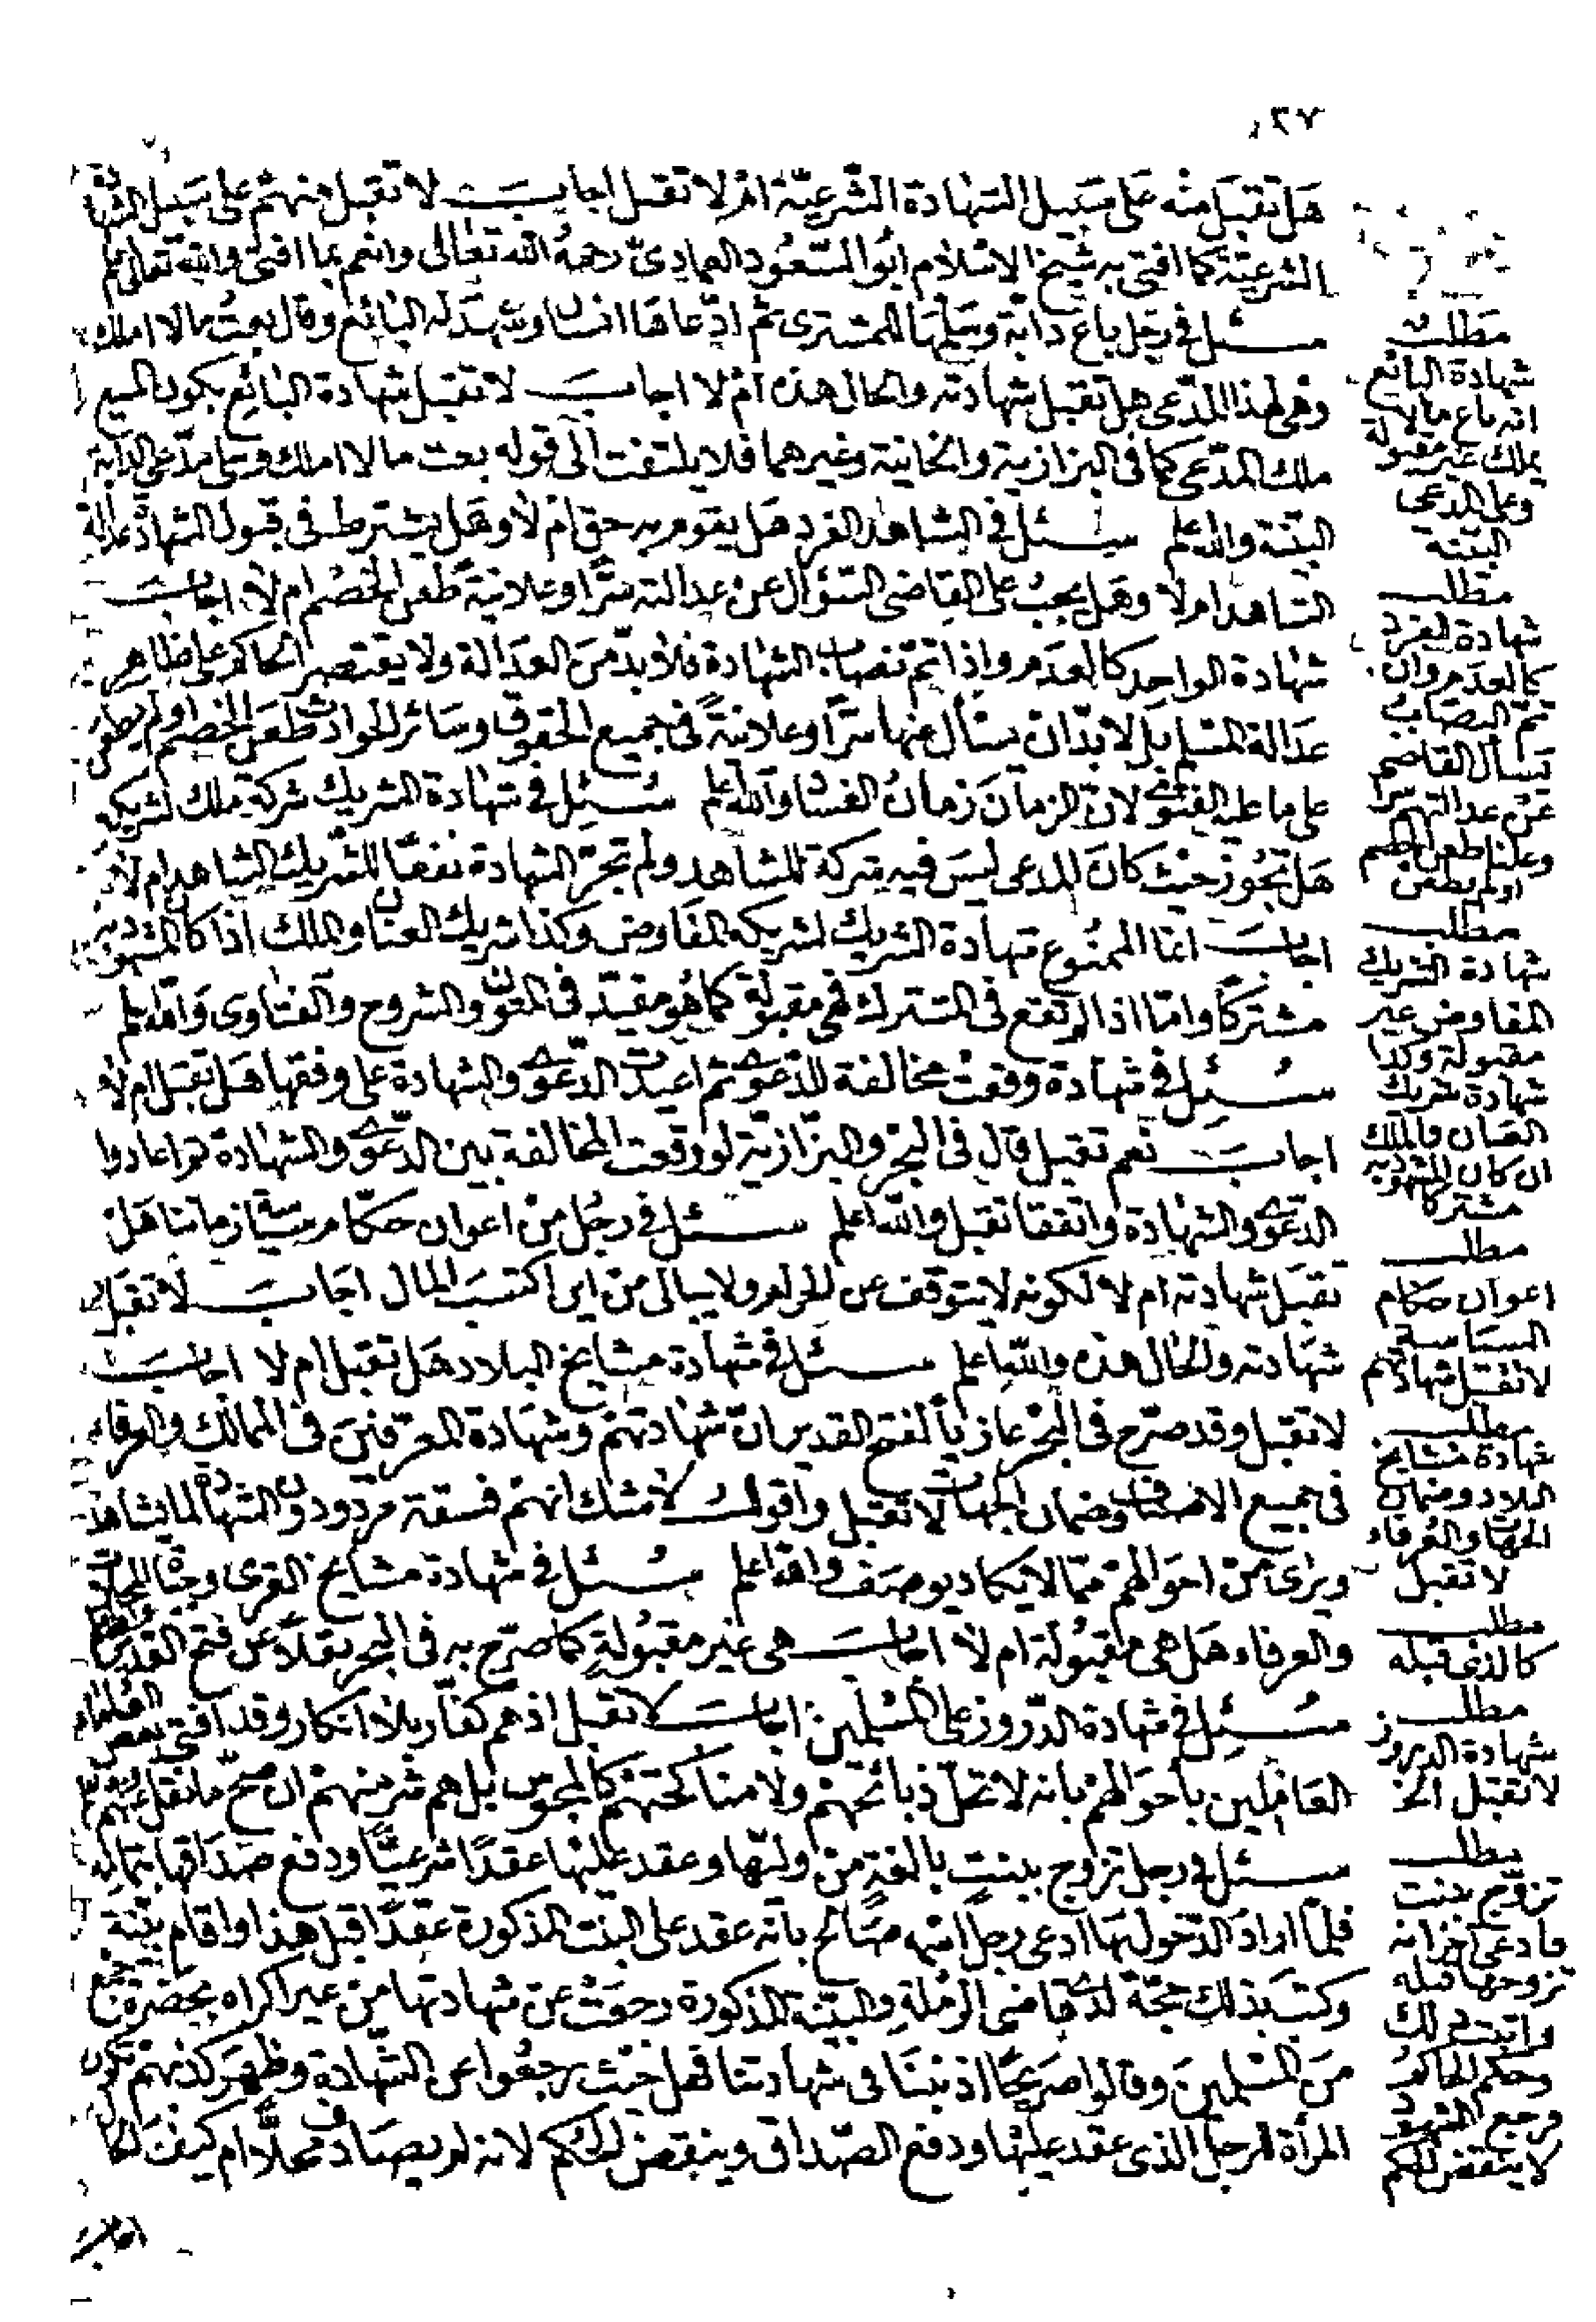 ٢٣٧
هل تقبل منه على سبيل الشهادة الشرعية ام لا تقبل اجاب لا تقبل منهم على سبيل الشهادة
الشرعية كما افتى به شيخ الاسلام ابو السعود العمادي رحمه الله تعالى وانعم بما افتى والله تعالى اعلم
سئل في رجل باع دابة وسلمها للمشتري ثم ادعاها انسان وشهد له البائع وقال بعت ما لا املك
وهي لهذا المدعي هل تقبل شهادته والحال هذه ام لا اجاب لا تقبل شهادة البائع بكون المبيع
ملك المدعي كما في البزازية والخانية وغيرهما فلا يلتفت الى قوله بعت ما لا املك وعلى مدعي الدابة
البينة والله اعلم سئل في الشاهد الفرد هل يقوم به حق ام لا وهل يشترط في قبول الشهادة عدالة
الشاهد ام لا وهل يجب على القاضي السؤال عن عدالته سرا وعلانية طعن الخصم ام لا اجاب
شهادة الواحد كالعدم واذا تم نصاب الشهادة فلا بد من العدالة ولا يقتصر الحاكم على ظاهر
عدالة المسلم بل لا بد ان يسأل عنها سرا وعلانية في جميع الحقوق وسائر الحوادث طعن الخصم او لم يطعن
على ما عليه الفتوى لان الزمان زمان الفساد والله اعلم سئل في شهادة الشريك شركة ملك لشريكه
هل تجوز حيث كان المدعى ليس فيه شركة للشاهد ولم تجر الشهادة نفعا للشريك الشاهد ام لا
اجاب انما الممنوع شهادة الشريك لشريكه المفاوض وكذا شريك العنان والملك اذا كان المشهود به
مشتركا واما اذا لم تقع في المشترك فهي مقبولة كما هو مقيد في المتون والشروح والفتاوى والله اعلم
سئل في شهادة وقعت مخالفة للدعوى ثم اعيدت الدعوى والشهادة على وفقها هل تقبل ام لا
اجاب نعم تقبل قال في البحر والبزازية لو وقعت المخالفة بين الدعوى والشهادة ثم اعادوا
الدعوى والشهادة واتفقا تقبل والله اعلم سئل في رجل من اعوان حكام سياسة زماننا هل
تقبل شهادته ام لا لكونه لا يتوقف عن الحرام ولا يبالي من اين اكتسب المال اجاب لا تقبل
شهادته والحال هذه والله اعلم سئل في شهادة مشايخ البلاد هل تقبل ام لا اجاب
لا تقبل وقد صرح في البحر عازيا لفتح القدير ان شهادتهم وشهادة المعرفين في الممالك والعرفاء
في جميع الاصناف وضمان الجهات لا تقبل واقول لا شك انهم فسقة مردودون الشهادة لما يشاهد
ويرى من احوالهم مما لا يكاد يوصف والله اعلم سئل في شهادة مشايخ القرى وجباة
والعرفاء هل هي مقبولة ام لا اجاب هي غير مقبولة كما صرح به في البحر نقلا عن فتح القدير والله اعلم
سئل في شهادة الدروز على المسلمين اجاب لا تقبل اذ هم كفار بلا انكار وقد افتى بعض العلماء
العاملين باحوالهم بانه لا تحل ذبائحهم ولا مناكحتهم كالمجوس بل هم شر منهم ان صح ما نقل عنهم
سئل في رجل تزوج ببنت بالغة من وليها وعقد عليها عقدا شرعيا ودفع صداقها بتمامه
فلما اراد الدخول بها ادعى رجل اسمه صالح بانه عقد على البنت المذكورة عقدا قبل هذا واقام بينة
وكتب بذلك حجة لدى قاضي الرملة والبينة المذكورة رجعت عن شهادتها من غير اكراه بحضرة جمع
من المسلمين وقالوا صريحا اذنبنا في شهادتنا فهل حيث رجعوا عن الشهادة وظهر كذبهم تكون
المرأة للرجل الذي عقد عليها ودفع الصداق وينقض الحكم لانه لم يصادف محلا ام كيف الحال
اجاب
مطلب
شهادة البائع
انه باع ما لا
يملك غير مقبولة
وعلى المدعي
البينة
مطلب
شهادة الفرد
كالعدم وان
تم النصاب
يسأل القاضي
عن عدالته سرا
وعلنا طعن الخصم
او لم يطعن
مطلب
شهادة الشريك
المفاوض غير
مقبولة وكذا
شهادة شريك
العنان والملك
ان كان المشهود به
مشتركا
مطلب
اعوان حكام
السياسة
لا تقبل شهادتهم
مطلب
شهادة مشايخ
البلاد وضمان
الجهات والعرفاء
لا تقبل
مطلب
كالذي قبله
مطلب
شهادة الدروز
لا تقبل الخ
مطلب
تزوج بنت
فادعى اخر انه
تزوجها قبله
واثبت ذلك
وحكم الحاكم
فرجع الشهود
لا ينتقض الحكم